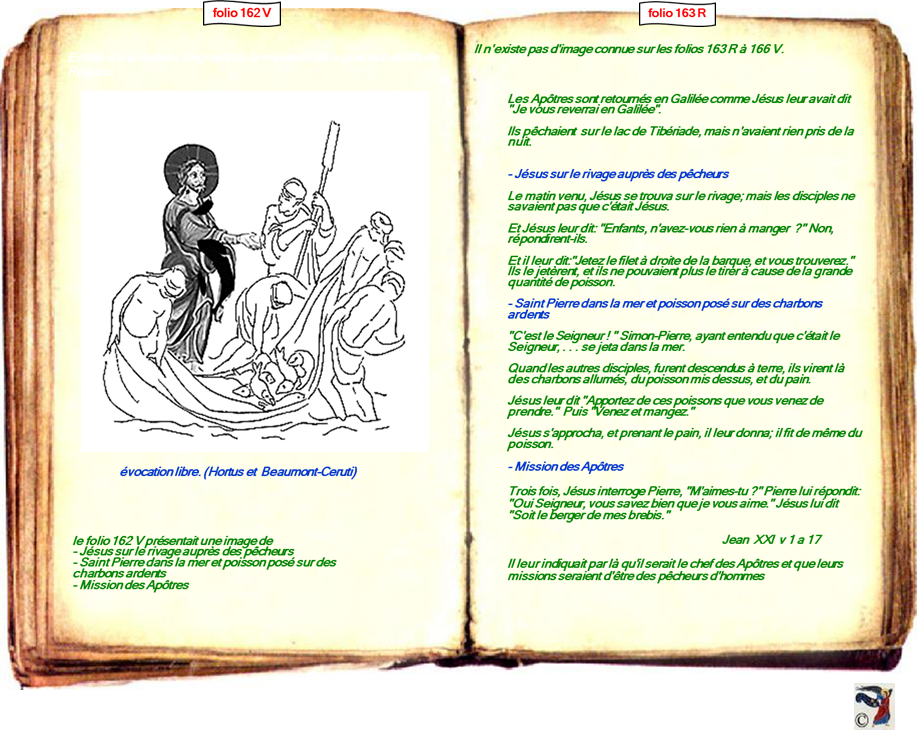 folio 162 V
évocation libre. (Hortus et Beaumont-Ceruti)
le folio 162 V présentait une image de
- Jésus sur le rivage auprès des pêcheurs
- Saint Pierre dans la mer et poisson posé sur des
charbons ardents
- Mission des Apôtres
folio 163 R
Il n'existe pas d'image connue sur les folios 163 R à 166 V.
Les Apôtres sont retournés en Galilée comme Jésus leur avait dit
"Je vous reverrai en Galilée".
Ils pêchaient sur le lac de Tibériade, mais n'avaient rien pris de la
nuit.
- Jésus sur le rivage auprès des pêcheurs
Le matin venu, Jésus se trouva sur le rivage; mais les disciples ne
savaient pas que c'était Jésus.
Et Jésus leur dit: "Enfants, n'avez-vous rien à manger ?" Non,
répondirent-ils.
Et il leur dit:"Jetez le filet à droite de la barque, et vous trouverez."
Ils le jetèrent, et ils ne pouvaient plus le tirer à cause de la grande
quantité de poisson.
- Saint Pierre dans la mer et poisson posé sur des charbons
ardents
"C'est le Seigneur ! " Simon-Pierre, ayant entendu que c'était le
Seigneur, . . . se jeta dans la mer.
Quand les autres disciples, furent descendus à terre, ils virent là
des charbons allumés, du poisson mis dessus, et du pain.
Jésus leur dit "Apportez de ces poissons que vous venez de
prendre." Puis "Venez et mangez."
Jésus s'approcha, et prenant le pain, il leur donna; il fit de même du
poisson.
- Mission des Apôtres
Trois fois, Jésus interroge Pierre, "M'aimes-tu ?" Pierre lui répondit:
"Oui Seigneur, vous savez bien que je vous aime." Jésus lui dit
"Soit le berger de mes brebis."
Jean XXI v 1 a 17
Il leur indiquait par là qu'il serait le chef des Apôtres et que leurs
missions seraient d'être des pêcheurs d'hommes
©